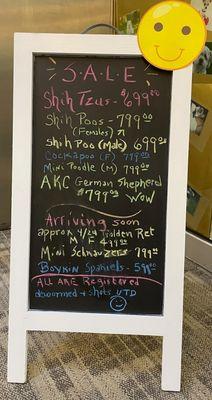 SALE
Shih Tzus - $699.00
Shih Poos - 799.00
(Females) ↗
Shih Poo (Male) 699.00
Cockapoo (F) 799.00
Mini Poodle (M) 799.00
AKC German Shepherd
$799.00 Wow
Arriving soon
approx 4/24 Golden Ret
M F 499.00
Mini Schnauzers 799.00
Boykin Spaniels - 599.00
ALL ARE Registered
dewormed + shots UTD